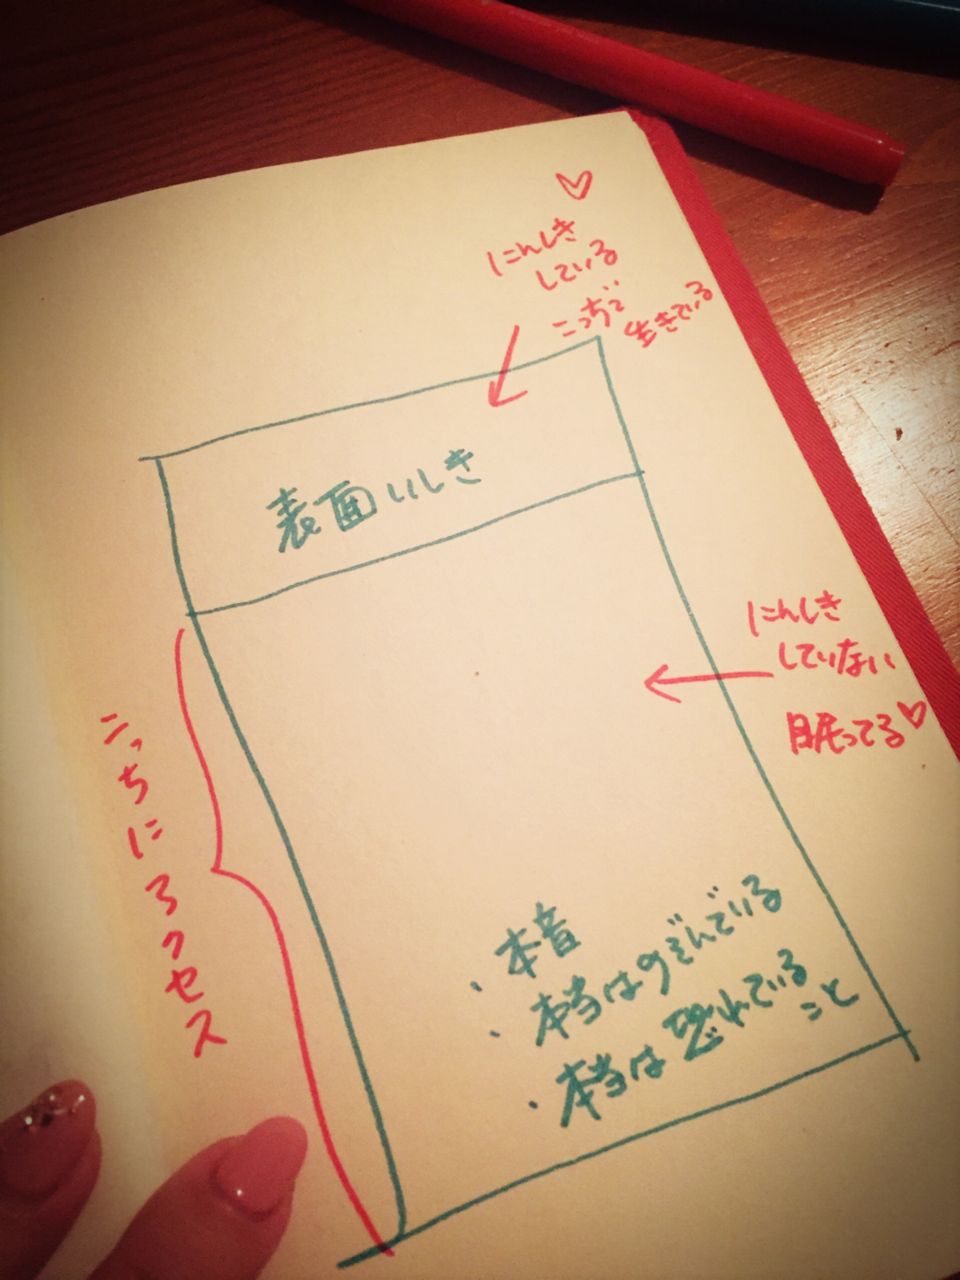 にんしき
している
こっちで
生きている
表面いしき
にんしき
していない
眠ってる
こっちにアクセス
・本音
・本当はのぞんでいる
・本当は恐れている
こと